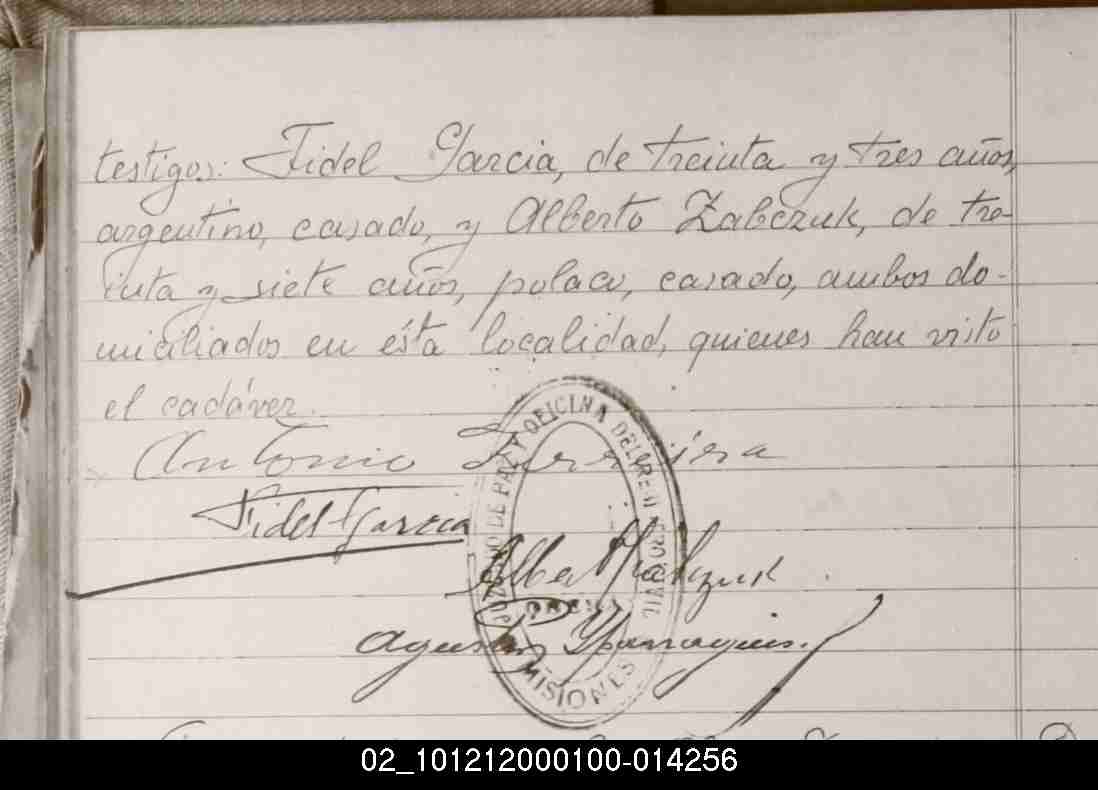 testigos: Fidel Garcia, de treinta y tres años,
argentino, casado, y Alberto Zabczuk, de tre-
inta y siete años, polaco, casado, ambos do-
miciliados en ésta localidad, quienes han visto
el cadáver.
Antonio
Fidel Garcia
JUZGADO DE PAZ Y OFICINA DEL REG. CIVIL
Agustin
MISIONES
02_101212000100-014256